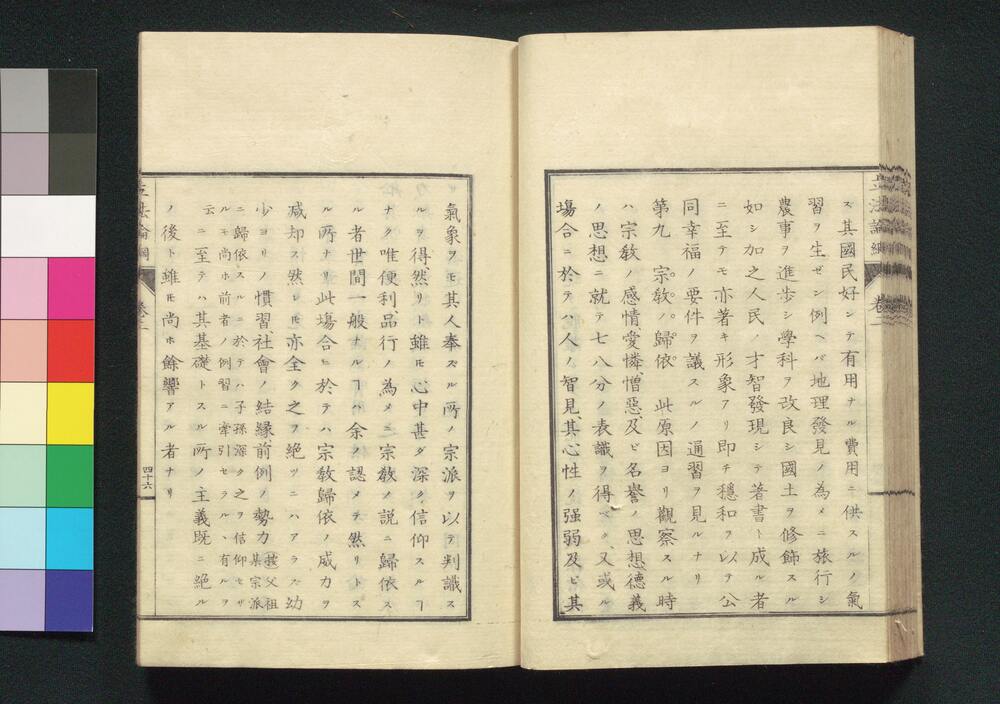 ス其國民好ンテ有用ナル費用ニ供スルノ氣
習ヲ生ゼシ例ヘバ地理發見ノ為メニ旅行シ
農事ヲ進歩シ學科ヲ改良シ國土ヲ修飾スル
如シ加之人民ノ才智發現シテ著書ト成ル者
ニ至テモ亦著キ形象アリ即チ穩和ヲ以ヲ公
同幸福ノ要件ヲ議スルノ通習ヲ見ルナリ
第九 宗教ノ歸依 此原因ヨリ觀察スル時
ハ宗教ノ感情愛憐憎惡及ビ名譽ノ思想德義
ノ思想ニ就テ七八分ノ表識ヲ得ベク又或ル
塲合ニ於テハ人ノ智見其心性ノ强弱及ビ其
立法論綱 卷二
氣象ヲモ其人奉ズル所ノ宗派ヲ以テ判識ス
ルヲ得然リト雖モ心中甚ダ深ク信仰スルヿ
ナク唯便利品行ノ為メニ宗教ノ説ニ歸依ス
ル者世間一般ナルヿハ余ノ認メテ然リトス
ル所ナリ此塲合ニ於テハ宗教歸依ノ威力ヲ
減却ス然レモ亦全ク之ヲ絶ツニハアラズ幼
少ヨリノ慣習社會ノ結縁前例ノ勢力 按父祖某宗派
ニ歸依スルニ於テハ子孫深ク之ヲ信仰セザルモ尚ホ前者ノ例習ニ牽引セラルヽ有ルヲ
云 ニ至テハ其基礎トスル所ノ主義既ニ絶ル
ノ後ト雖モ尚ホ餘響アル者ナリ
立法論綱 卷二 四十六